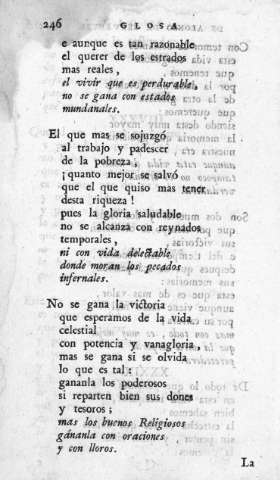 246 GLOSA
e aunque es tan razonable
el querer de los estrados
mas reales,
el vivir que es perdurable,
no se gana con estados
mundanales.
El que mas se sojuzgó
al trabajo y padescer
de la pobreza,
¡quanto mejor se salvó
que el que quiso mas tener
desta riqueza!
pues la gloria saludable
no se alcanza con reynados
temporales,
ni con vida delectable
donde moran los pecados
infernales.
No se gana la victoria
que esperamos de la vida
celestial
con potencia y vanagloria,
mas se gana si se olvida
lo que es tal:
gananla los poderosos
si reparten bien sus dones
y tesoros;
mas los buenos Religiosos
gánanla con oraciones
y con lloros.
La